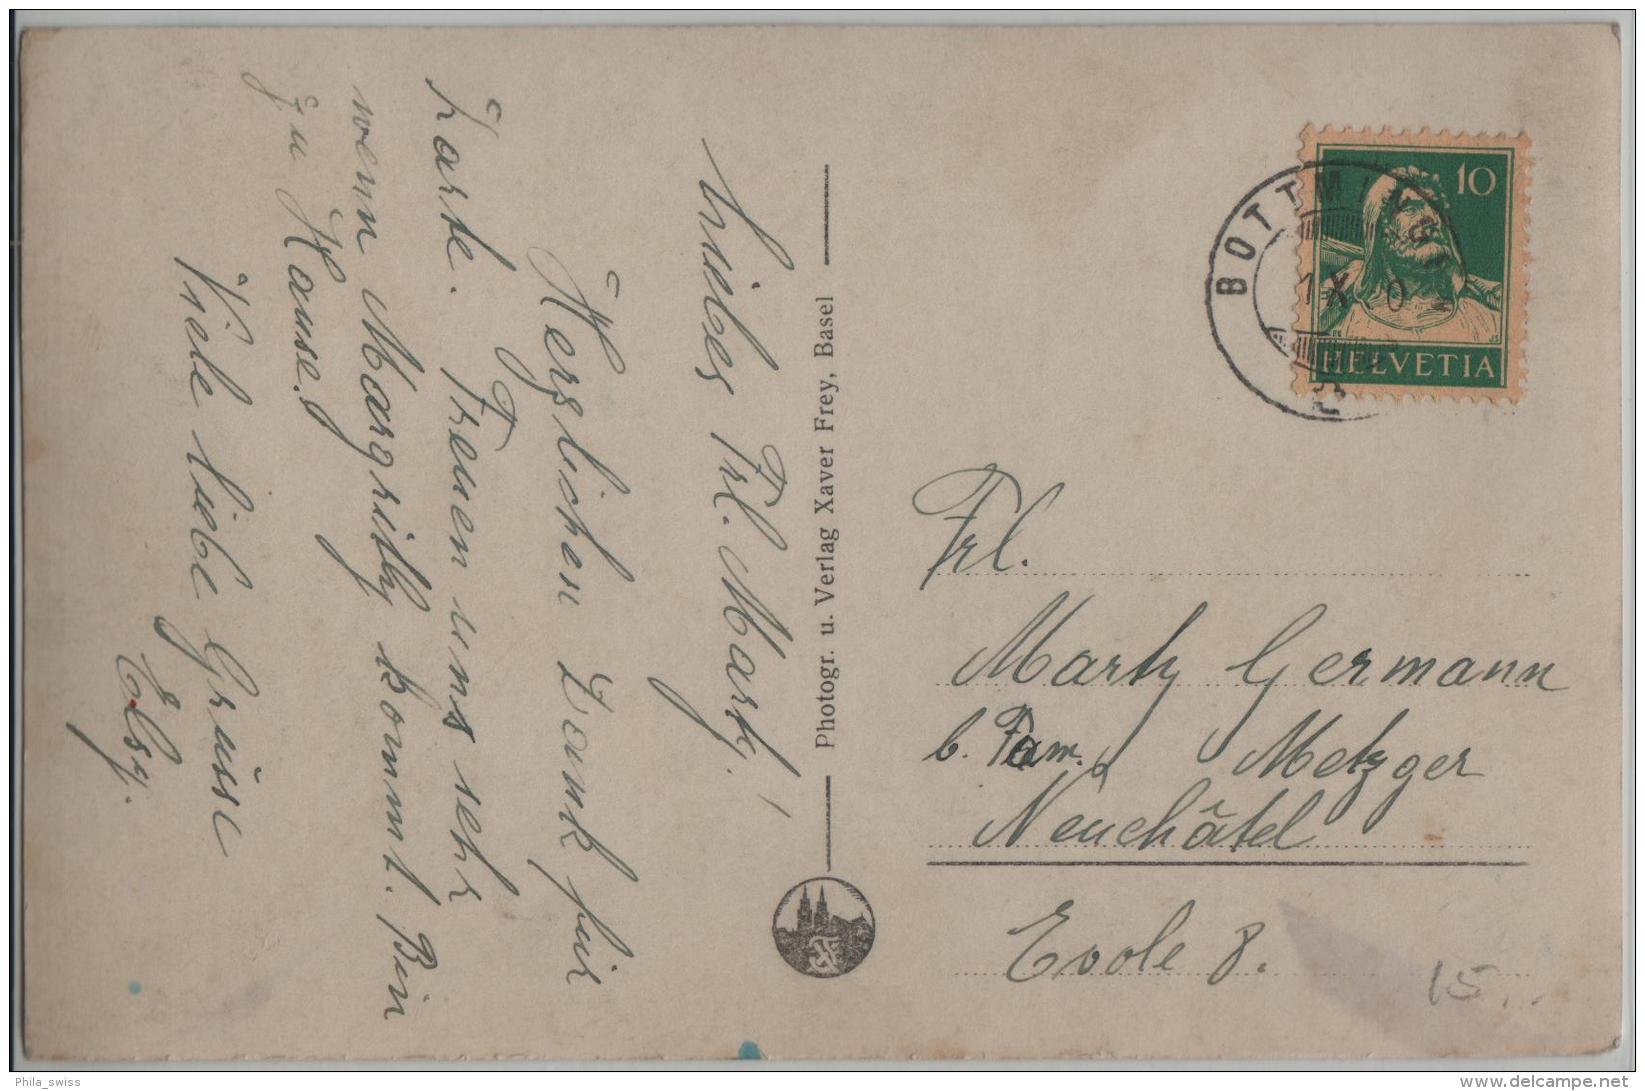 Liebes Frl. Marty!
Herzlichen Dank für
Karte. Freuen uns sehr
wenn Margrithly kommt. Bin
zu Hause.
Viele liebe Grüsse
Elsy.
Photogr. u. Verlag Xaver Frey, Basel
BOTTMINGEN
10
HELVETIA
Frl.
Marty Germann
b. Fam. Metzger
Neuchâtel
Evole 8.
15.
Phila_swiss
delcampe.net